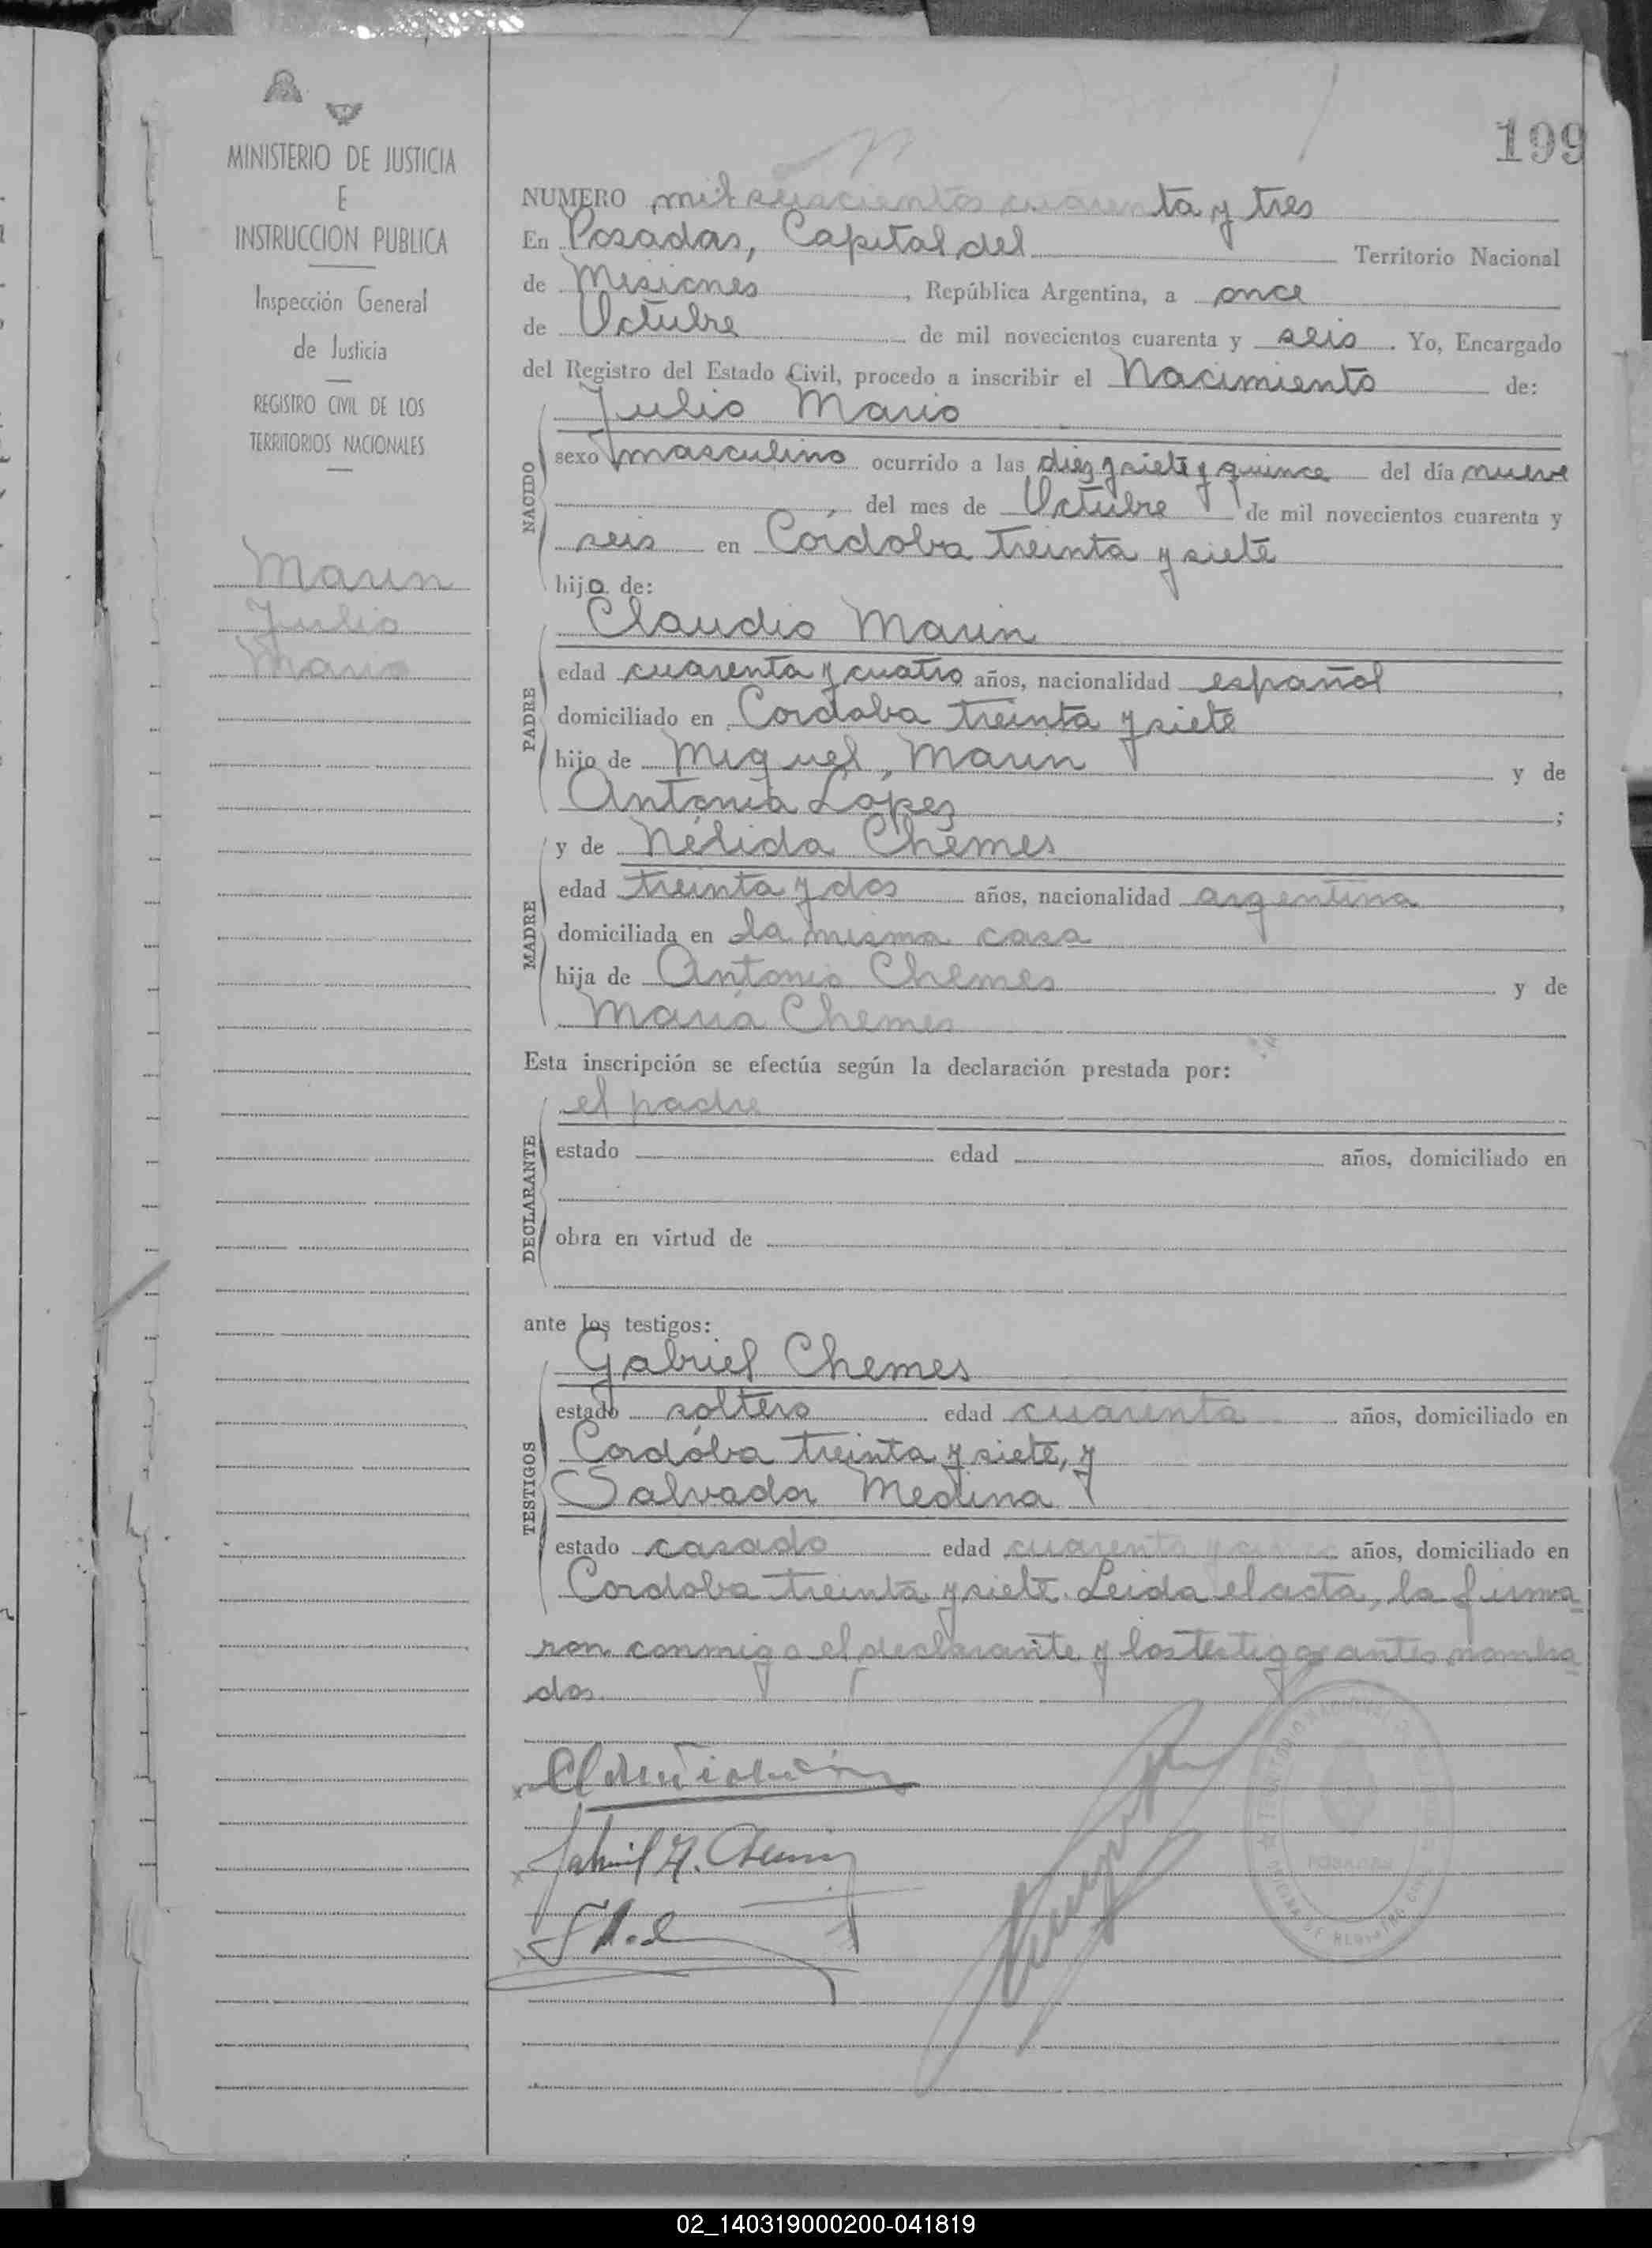 MINISTERIO DE JUSTICIA
E
INSTRUCCION PUBLICA
Inspección General
de Justicia
REGISTRO CIVIL DE LOS
TERRITORIOS NACIONALES
Marin
Julio
Mario
199
NUMERO mil seiscientos cuarenta y tres
En Posadas, Capital del Territorio Nacional
de Misiones, República Argentina, a once
de Octubre de mil novecientos cuarenta y seis. Yo, Encargado
del Registro del Estado Civil, procedo a inscribir el Nacimiento de:
NACIDO
Julio Mario
sexo masculino ocurrido a las diez y siete y quince del día nueve
del mes de Octubre de mil novecientos cuarenta y
seis en Córdoba treinta y siete
hijo de:
PADRE
Claudio Marin
edad cuarenta y cuatro años, nacionalidad español,
domiciliado en Cordoba treinta y siete
hijo de Miguel Marin y de
Antonia López;
MADRE
y de Nélida Chemes
edad treinta y dos años, nacionalidad argentina,
domiciliada en la misma casa
hija de Antonio Chemes y de
María Chemes
Esta inscripción se efectúa según la declaración prestada por:
DECLARANTE
el padre
estado edad años, domiciliado en
obra en virtud de
ante los testigos:
TESTIGOS
Gabriel Chemes
estado soltero edad cuarenta años, domiciliado en
Cordóba treinta y siete, y
Salvador Medina
estado casado edad cuarenta y años, domiciliado en
Cordoba treinta y siete. Leida el acta, la firma-
ron conmigo el declarante y los testigos antes nombra-
dos.
POSADAS
02_140319000200-041819